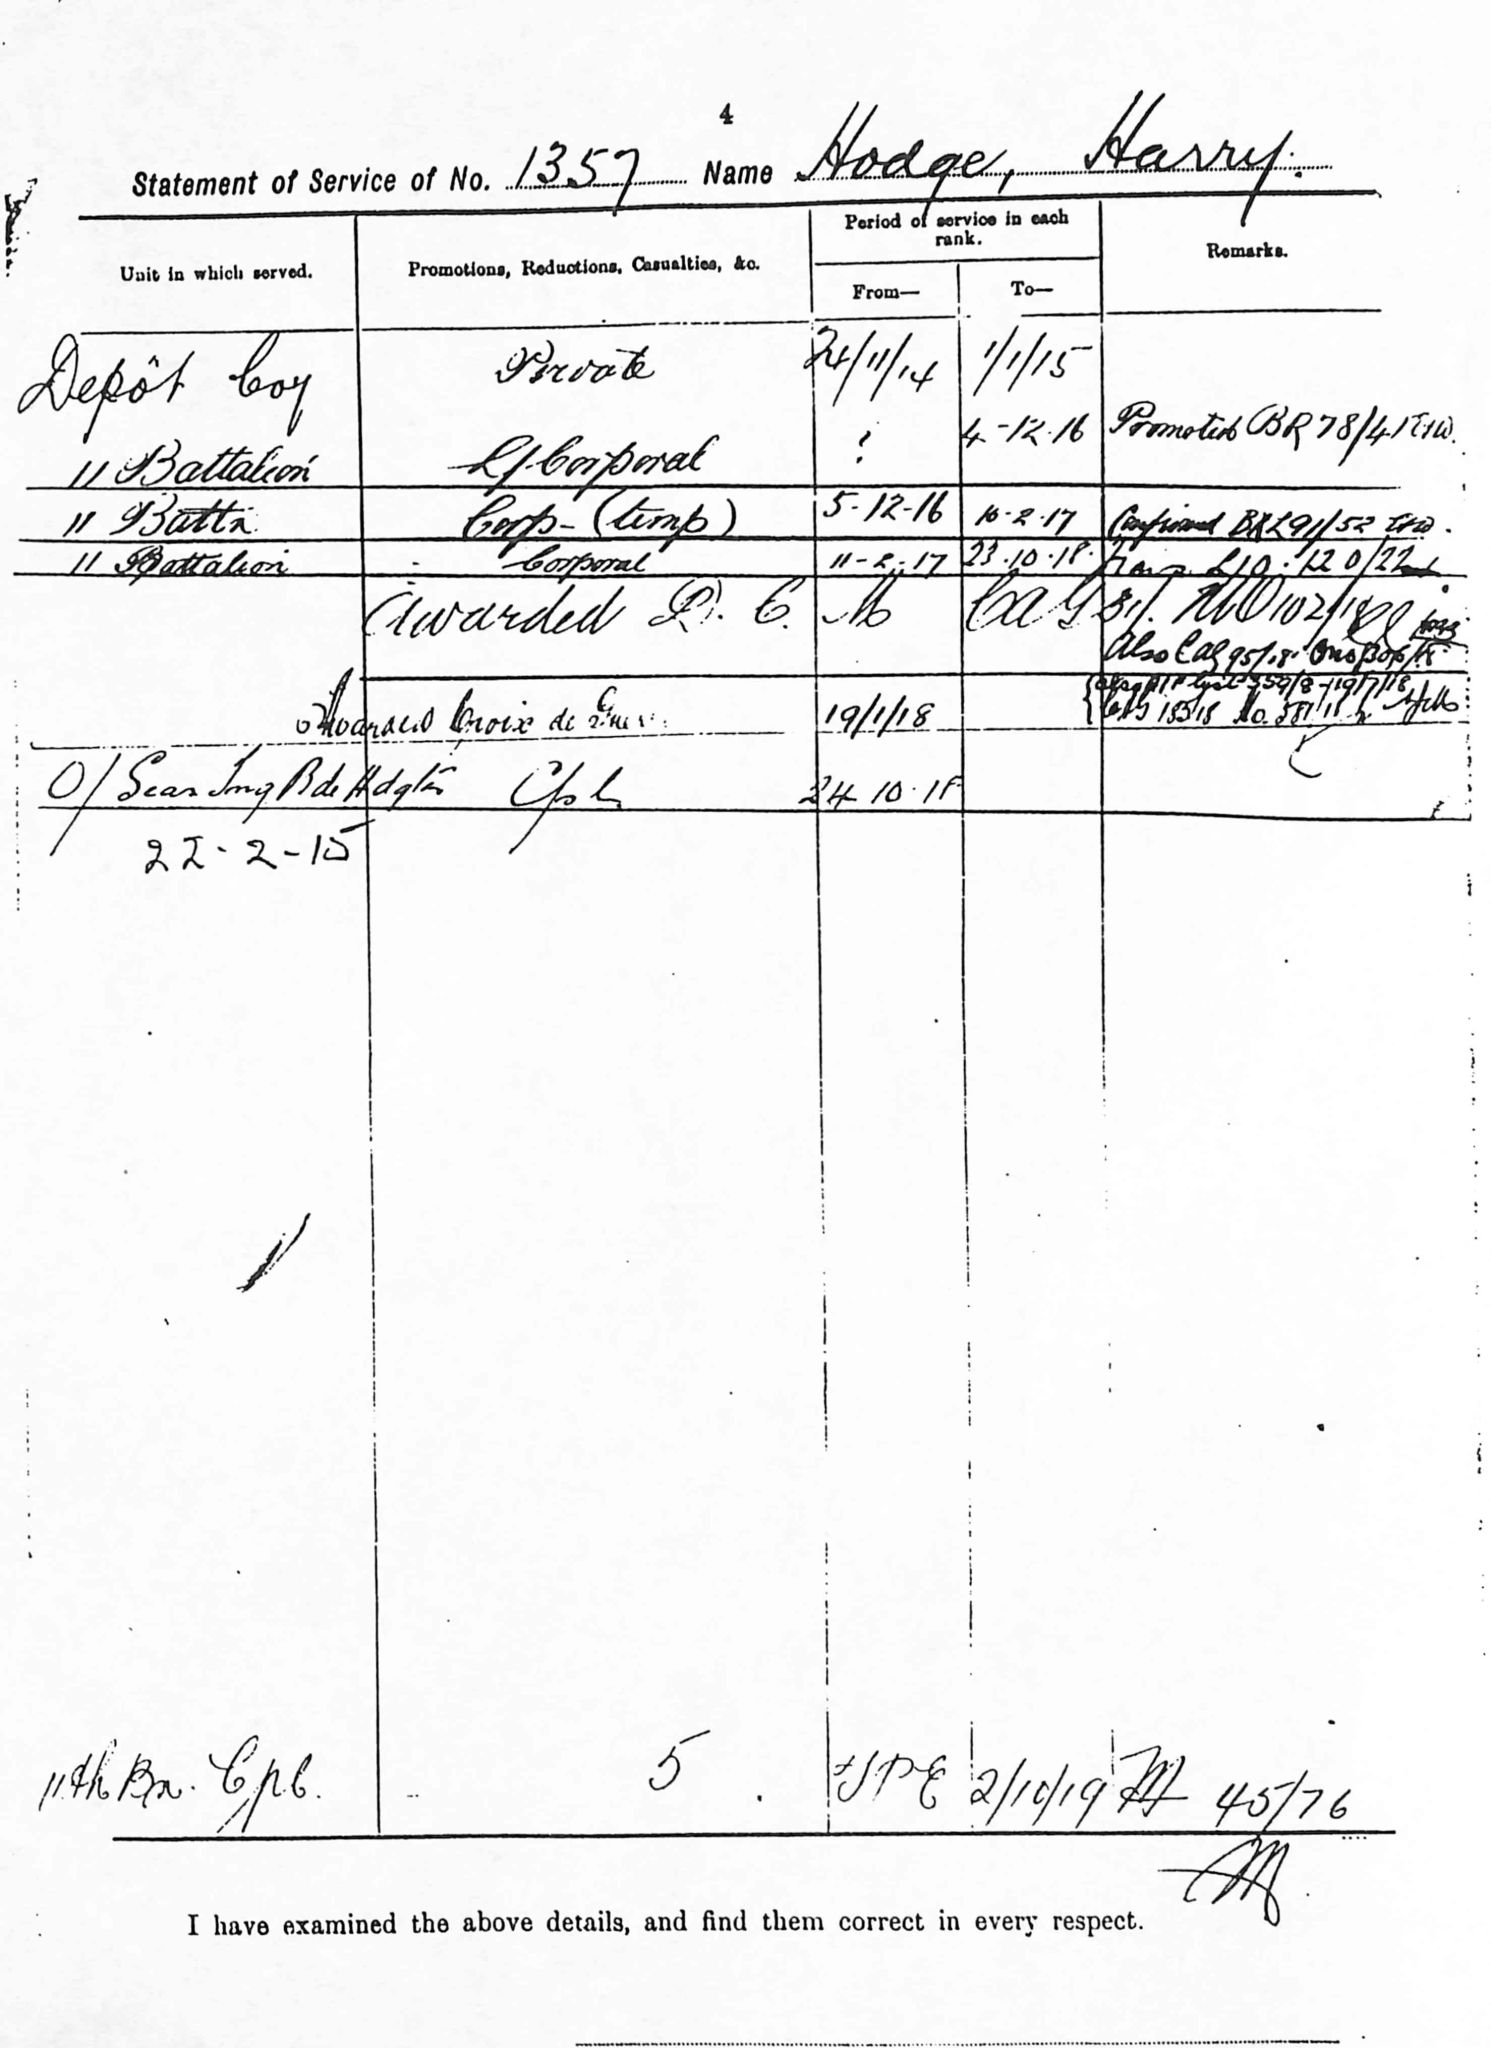 4
Statement of Service of No. 1357 Name Hodge, Harry.
Unit in which served.
Promotions, Reductions, Casualties, &c.
Period of service in each rank.
From—
To—
Remarks.
Depôt Coy Private 24/11/14 1/1/15
11 Battalion L/Corporal ? 4-12-16 Promoted BR 78/41
11 Battn Corp- (temp) 5-12-16 10-2-17 Confirmed
11 Battalion Corporal 11-2-17 23.10.18.
Awarded D. C. M CAG 31/.
Also CAG 95/18.
Awarded Croix de 19/1/18
O/Seas Trng Bde Hdqtrs Cpl. 24.10.18
22-2-15
11th Bn. Cpl. 5 2/10/19 45/76
I have examined the above details, and find them correct in every respect.